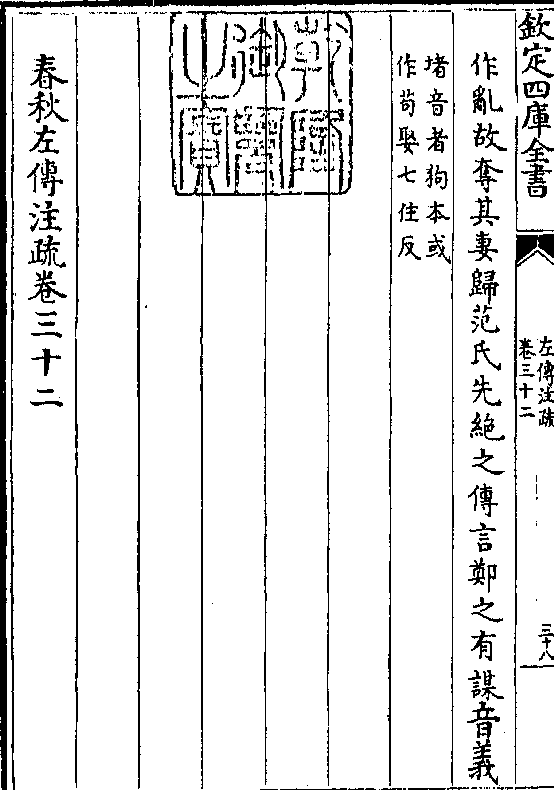 欽定四庫全書
左傳注疏
卷三十二
三十八
作亂故奪其妻歸范氏先絶之傳言鄭之有謀音義
堵音者狗本或
作苟娶七住反
乾隆
御覽
之寶
春秋左傳注疏卷三十二